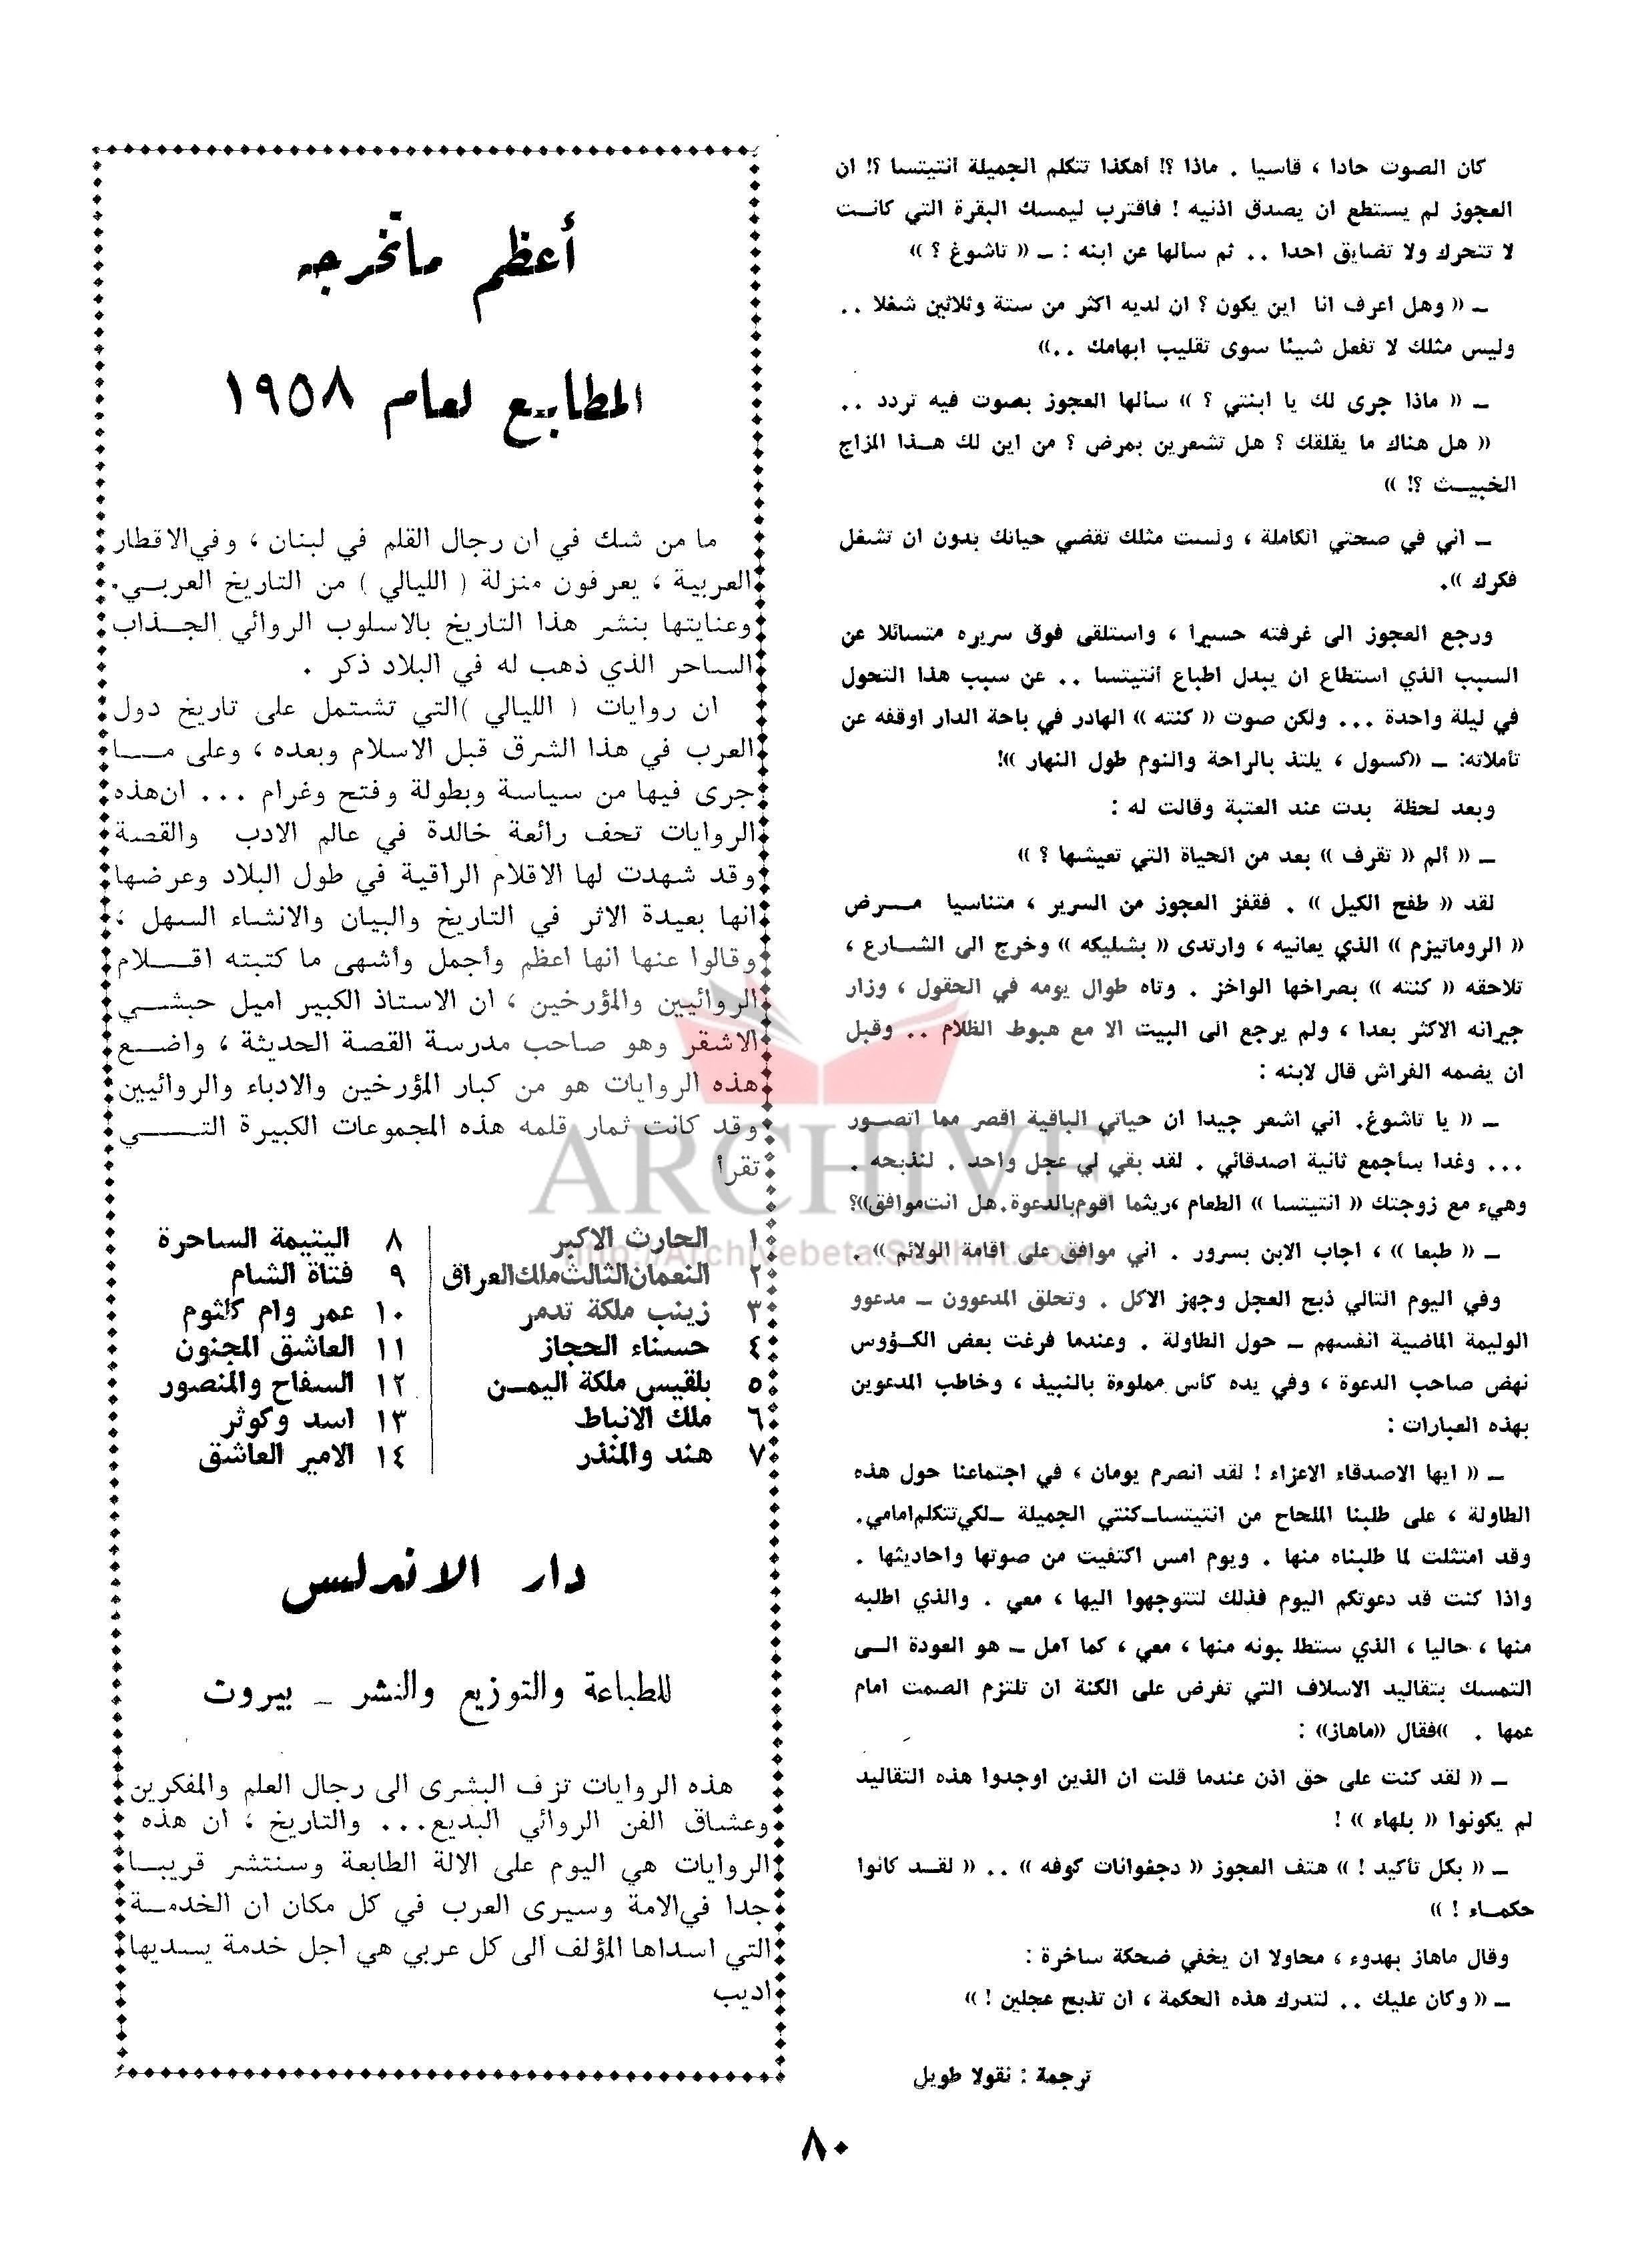 كان الصوت حادا ، قاسيا . ماذا ؟! أهكذا تتكلم الجميلة أنتيتسا ؟! ان
العجوز لم يستطع ان يصدق اذنيه ! فاقترب ليمسك البقرة التي كانت
لا تتحرك ولا تضايق احدا .. ثم سألها عن ابنه : ـ « تاشوغ ؟ »
ـ « وهل اعرف انا اين يكون ؟ ان لديه اكثر من ستة وثلاثين شغلا ..
وليس مثلك لا تفعل شيئا سوى تقليب ابهامك ..»
ـ « ماذا جرى لك يا ابنتي ؟ » سألها العجوز بصوت فيه تردد ..
« هل هناك ما يقلقك ؟ هل تشعرين بمرض ؟ من اين لك هذا المزاج
الخبيث ؟! »
ـ اني في صحتي الكاملة ، ولست مثلك تقضي حياتك بدون ان تشغل
فكرك ».
ورجع العجوز الى غرفته حسيرا ، واستلقى فوق سريره متسائلا عن
السبب الذي استطاع ان يبدل اطباع أنتيتسا .. عن سبب هذا التحول
في ليلة واحدة ... ولكن صوت « كنته » الهادر في باحة الدار اوقفه عن
تأملاته: ـ «كسول ، يلتذ بالراحة والنوم طول النهار »!
وبعد لحظة بدت عند العتبة وقالت له :
ـ « ألم « تقرف » بعد من الحياة التي تعيشها ؟ »
لقد « طفح الكيل » . فقفز العجوز من السرير ، متناسيا مرض
« الروماتيزم » الذي يعانيه ، وارتدى « بشليكه » وخرج الى الشارع ،
تلاحقه « كنته » بصراخها الواخز . وتاه طوال يومه في الحقول ، وزار
جيرانه الاكثر بعدا ، ولم يرجع الى البيت الا مع هبوط الظلام .. وقبل
ان يضمه الفراش قال لابنه :
ـ « يا تاشوغ. اني اشعر جيدا ان حياتي الباقية اقصر مما اتصور
... وغدا سأجمع ثانية اصدقائي . لقد بقي لي عجل واحد . لنذبحه .
وهيء مع زوجتك « انتيتسا » الطعام ،ريثما اقوم بالدعوة.هل انت موافق»؟
ـ « طبعا » ، اجاب الابن بسرور . اني موافق على اقامة الولائم » .
وفي اليوم التالي ذبح العجل وجهز الاكل . وتحلق المدعوون ـ مدعوو
الوليمة الماضية انفسهم ـ حول الطاولة . وعندما فرغت بعض الكؤوس
نهض صاحب الدعوة ، وفي يده كأس مملوءة بالنبيذ ، وخاطب المدعوين
بهذه العبارات :
ـ « ايها الاصدقاء الاعزاء ! لقد انصرم يومان ، في اجتماعنا حول هذه
الطاولة ، على طلبنا الملحاح من انتيتسا-كنتي الجميلة -لكي تتكلم امامي.
وقد امتثلت لما طلبناه منها . ويوم امس اكتفيت من صوتها واحاديثها .
واذا كنت قد دعوتكم اليوم فذلك لتتوجهوا اليها ، معي . والذي اطلبه
منها ، حاليا ، الذي ستطلبونه منها ، معي ، كما آمل ـ هو العودة الى
التمسك بتقاليد الاسلاف التي تفرض على الكنة ان تلتزم الصمت امام
عمها . »فقال «ماهاز» :
ـ « لقد كنت على حق اذن عندما قلت ان الذين اوجدوا هذه التقاليد
لم يكونوا « بلهاء » !
ـ « بكل تأكيد ! » هتف العجوز « دجفوانات كوفه » .. « لقد كانوا
حكماء ! »
وقال ماهاز بهدوء ، محاولا ان يخفي ضحكة ساخرة :
ـ « وكان عليك .. لتدرك هذه الحكمة ، ان تذبح عجلين ! »
ترجمة : نقولا طويل
أعظم ماتخرجه
المطابع لعام ١٩٥٨
ما من شك في ان رجال القلم في لبنان ، وفي الاقطار
العربية ، يعرفون منزلة ( الليالي ) من التاريخ العربي.
وعنايتها بنشر هذا التاريخ بالاسلوب الروائي الجذاب
الساحر الذي ذهب له في البلاد ذكر .
ان روايات ( الليالي )التي تشتمل على تاريخ دول
العرب في هذا الشرق قبل الاسلام وبعده ، وعلى ما
جرى فيها من سياسة وبطولة وفتح وغرام ... ان هذه
الروايات تحف رائعة خالدة في عالم الادب والقصة
وقد شهدت لها الاقلام الراقية في طول البلاد وعرضها
انها بعيدة الاثر في التاريخ والبيان والانشاء السهل ،
وقالوا عنها انها اعظم وأجمل وأشهى ما كتبته اقلام
الروائيين والمؤرخين ، ان الاستاذ الكبير اميل حبشي
الاشقر وهو صاحب مدرسة القصة الحديثة ، واضع
هذه الروايات هو من كبار المؤرخين والادباء والروائيين
وقد كانت ثمار قلمه هذه المجموعات الكبيرة التي
تقرأ
١ الحارث الاكبر
٢ النعمان الثالث ملك العراق
٣ زينب ملكة تدمر
٤ حسناء الحجاز
٥ بلقيس ملكة اليمن
٦ ملك الانباط
٧ هند والمنذر
٨ اليتيمة الساحرة
٩ فتاة الشام
١٠ عمر وام كلثوم
١١ العاشق المجنون
١٢ السفاح والمنصور
١٣ اسد وكوثر
١٤ الامير العاشق
دار الاندلس
للطباعة والتوزيع والنشر ـ بيروت
هذه الروايات تزف البشرى الى رجال العلم والمفكرين
وعشاق الفن الروائي البديع... والتاريخ ، ان هذه
الروايات هي اليوم على الالة الطابعة وستنتشر قريبا
جدا في الامة وسيرى العرب في كل مكان ان الخدمة
التي اسداها المؤلف الى كل عربي هي اجل خدمة يسديها
اديب
٨٠
ARCHIVE
http://Archivebeta.Sakhrit.com